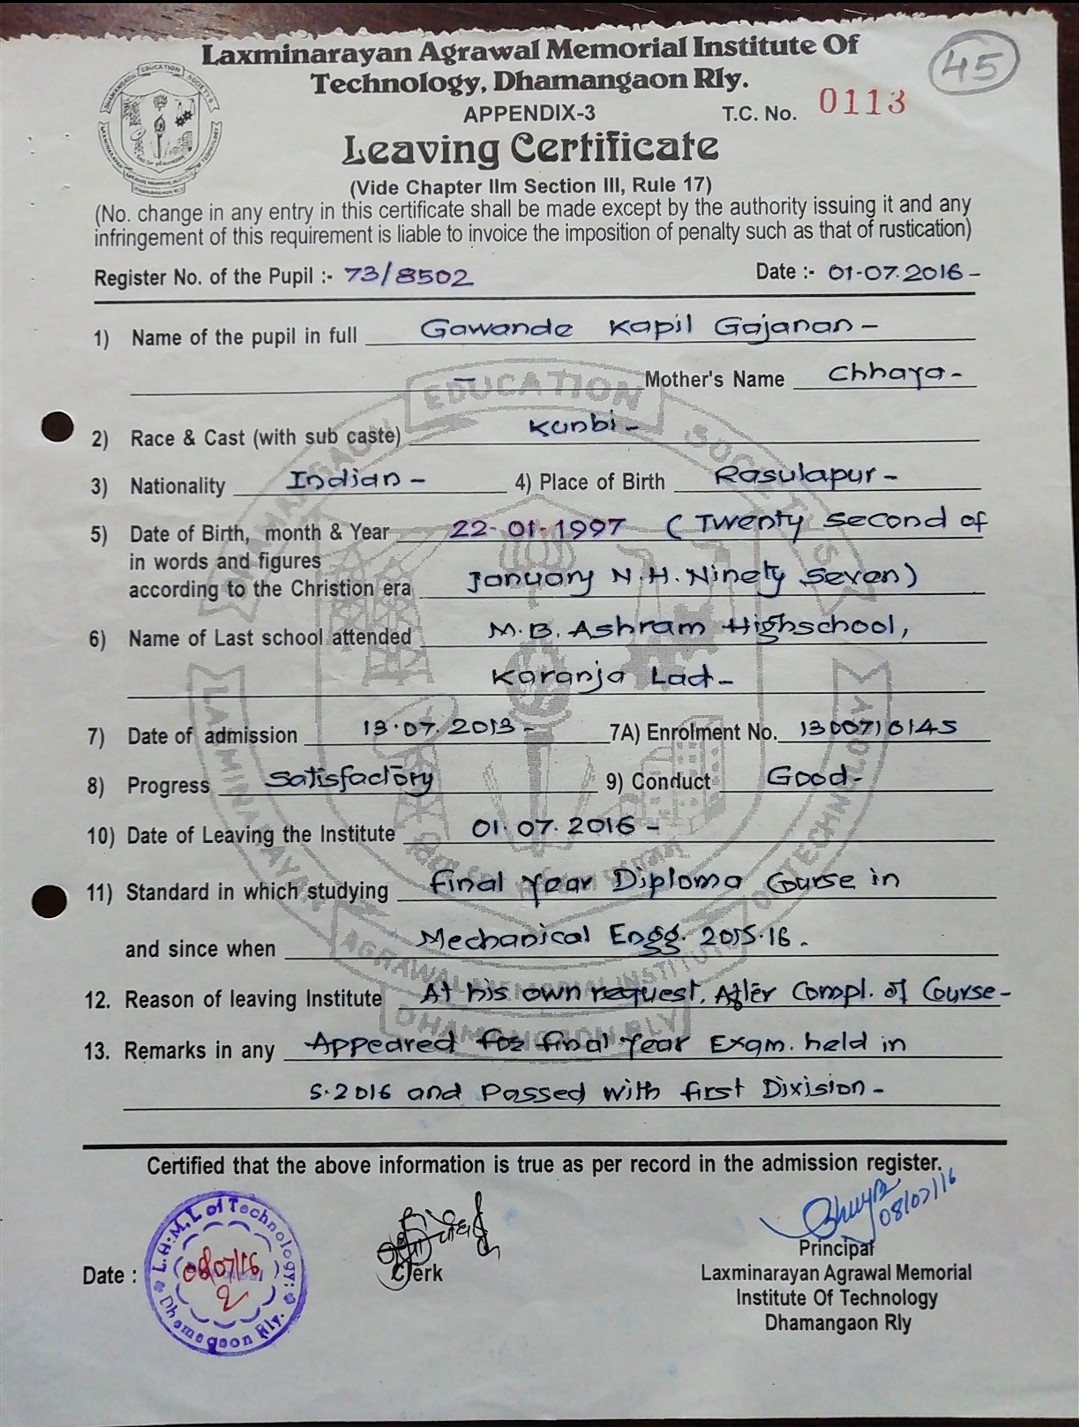 Laxminarayan Agrawal Memorial Institute Of
Technology, Dhamangaon Rly.
45
APPENDIX-3
T.C. No. 0113
Leaving Certificate
(Vide Chapter IIm Section III, Rule 17)
(No. change in any entry in this certificate shall be made except by the authority issuing it and any
infringement of this requirement is liable to invoice the imposition of penalty such as that of rustication)
Register No. of the Pupil :- 73/8502 Date :- 01-07.2016-
1) Name of the pupil in full Gawande Kapil Gajanan-
- Mother's Name Chhaya-
2) Race & Cast (with sub caste) Kunbi-
3) Nationality Indian- 4) Place of Birth Rasulapur-
5) Date of Birth, month & Year 22-01-1997 (Twenty second of
in words and figures
according to the Christion era January N.H. Ninety Seven)
6) Name of Last school attended M.B. Ashram Highschool,
Karanja Lad-
7) Date of admission 13.07.2013- 7A) Enrolment No. 1300710145
8) Progress Satisfactory 9) Conduct Good-
10) Date of Leaving the Institute 01.07.2016-
11) Standard in which studying final Year Diploma Course in
and since when Mechanical Engg. 2015-16.
12. Reason of leaving Institute At his own request. After Compl. of Course-
13. Remarks in any Appeared for final Year Exam. held in
S-2016 and Passed with first Division-
Certified that the above information is true as per record in the admission register.
L.A.M.I. of Technology
Dhamagaon Rly.
Date : 08/07/16
Clerk
08/07/16
Principal
Laxminarayan Agrawal Memorial
Institute Of Technology
Dhamangaon Rly
EDUCATION SOCIETY'S
LAXMINARAYAN AGRAWAL MEMORIAL INSTITUTE OF TECHNOLOGY
DHAMANGAON RLY